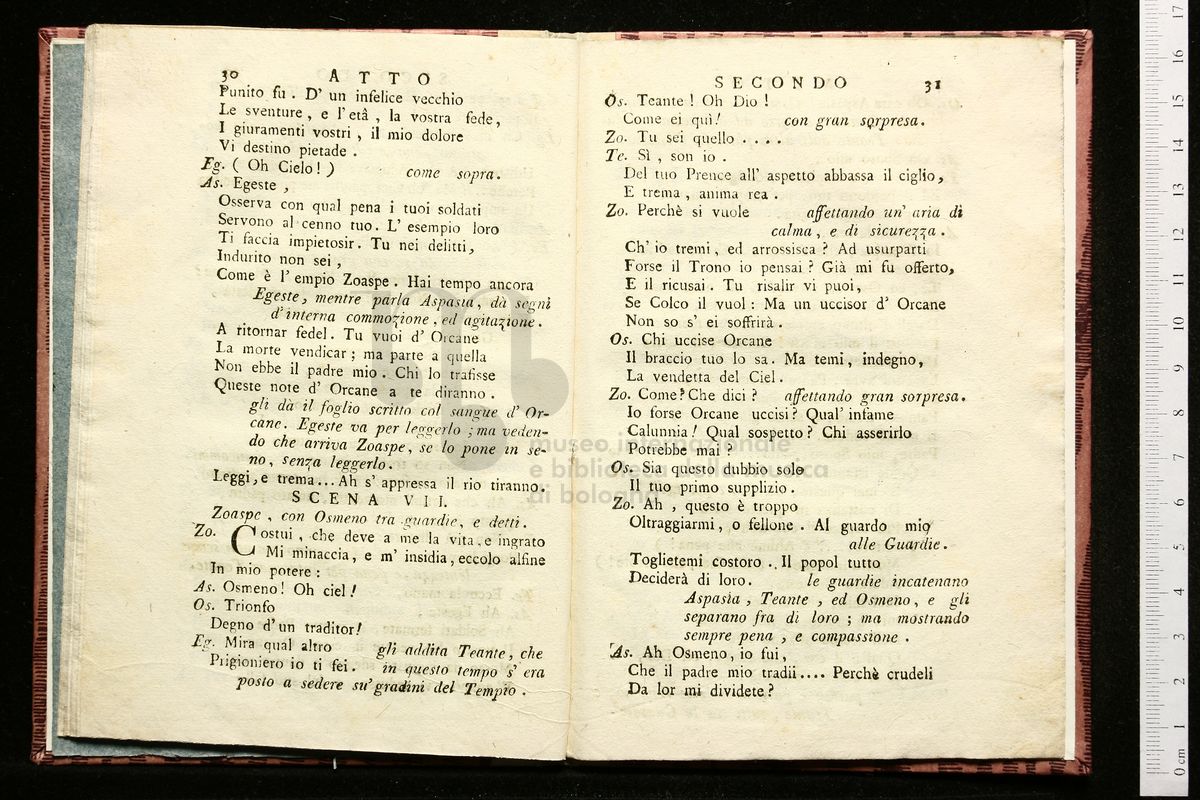 30 ATTO
Punito fu. D' un infelice vecchio
Le sventure, e l'età, la vostra fede,
I giuramenti vostri, il mio dolore
Vi destino pietade.
Eg. ( Oh Cielo! ) come sopra.
As. Egeste,
Osserva con qual pena i tuoi soldati
Servono al cenno tuo. L' esempio loro
Ti faccia impietosir. Tu nei delitti,
Indurito non sei,
Come è l' empio Zoaspe. Hai tempo ancora
Egeste, mentre parla Aspasia, dà segni
d'interna commozione, ed agitazione.
A ritornar fedel. Tu vuoi d' Orcane
La morte vendicar; ma parte a quella
Non ebbe il padre mio. Chi lo trafisse
Queste note d' Orcane a te diranno.
gli dà il foglio scritto col sangue d' Or-
cane. Egeste va per leggerlo; ma veden-
do che arriva Zoaspe, se lo pone in se-
no, senza leggerlo.
Leggi, e trema... Ah s' appressa il rio tiranno.
SCENA VII.
Zoaspe, con Osmeno tra guardie, e detti.
Zo. Costui, che deve a me la vita, e ingrato
Mi minaccia, e m' insidia, eccolo alfine
In mio potere:
As. Osmeno! Oh ciel!
Os. Trionfo
Degno d'un traditor!
Eg. Mira qual altro gli addita Teante, che
Prigioniero io ti fei. in questo tempo s' era
posto a sedere su' gradini del Tempio.
SECONDO 31
Os. Teante! Oh Dio!
Come ei quì! con gran sorpresa.
Zo. Tu sei quello ....
Te. Sì, son io.
Del tuo Prence all' aspetto abbassa il ciglio,
E trema, anima rea.
Zo. Perchè si vuole affettando un' aria di
calma, e di sicurezza.
Ch' io tremi, ed arrossisca? Ad usurparti
Forse il Trono io pensai? Già mi fu offerto,
E il ricusai. Tu risalir vi puoi,
Se Colco il vuol: Ma un uccisor d' Orcane
Non so s' ei soffrirà.
Os. Chi uccise Orcane
Il braccio tuo lo sa. Ma temi, indegno,
La vendetta del Ciel.
Zo. Come? Che dici? affettando gran sorpresa.
Io forse Orcane uccisi? Qual' infame
Calunnia! Qual sospetto? Chi asserirlo
Potrebbe mai?
Os. Sia questo dubbio solo
Il tuo primo supplizio.
Zo. Ah, questo è troppo
Oltraggiarmi, o fellone. Al guardo mio
alle Guardie.
Toglietemi costoro.. Il popol tutto
Deciderà di loro. le guardie incatenano
Aspasia, Teante, ed Osmeno, e gli
separano fra di loro; ma mostrando
sempre pena, e compassione.
As. Ah Osmeno, io fui,
Che il padre mio tradii.... Perchè crudeli
Da lor mi dividete?
museo internazionale
e biblioteca della musica
di bologna
0 cm 1 2 3 4 5 6 7 8 9 10 11 12 13 14 15 16 17